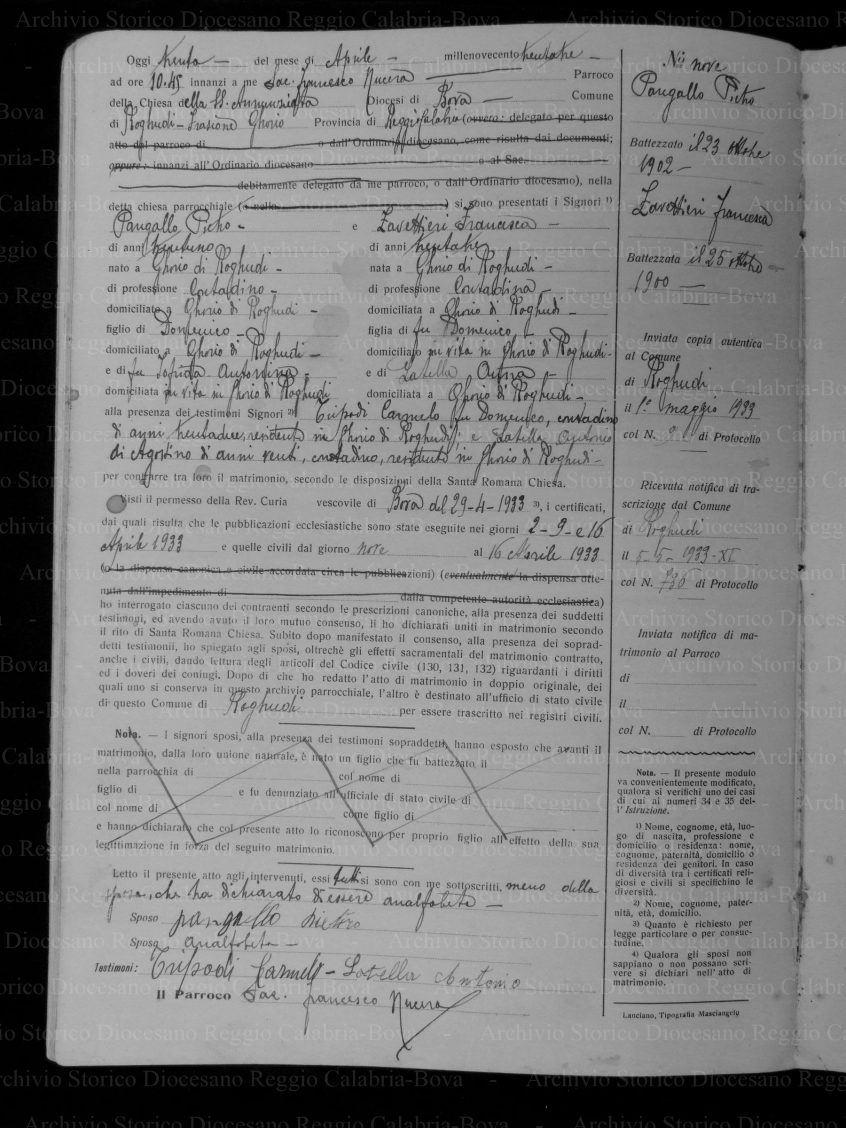 Oggi trenta — del mese di Aprile — millenovecento trentatre —
ad ore 10.45 innanzi a me Sac. Francesco Nucera Parroco
della Chiesa della SS. Annunziata Diocesi di Bova — Comune
di Roghudi - Frazione Ghorio Provincia di Reggio Calabria (ovvero: delegato per questo
atto dal parroco di o dall'Ordinario diocesano, come risulta dai documenti;
oppure: innanzi all'Ordinario diocesano o al Sac.
debitamente delegato da me parroco, o dall'Ordinario diocesano), nella
detta chiesa parrocchiale (o nella ) si sono presentati i Signori 1)
Pangallo Pietro - e Zavettieri Francesca —
di anni trentuno di anni trentatre
nato a Ghorio di Roghudi - nata a Ghorio di Roghudi -
di professione Contadino - di professione Contadina -
domiciliato a Ghorio di Roghudi - domiciliata a Ghorio di Roghudi -
figlio di Domenico - figlia di fu Domenico -
domiciliato a Ghorio di Roghudi - domiciliato in vita in Ghorio di Roghudi -
e di fu - e di Latella Anna -
domiciliata in vita in Ghorio di Roghudi domiciliata a Ghorio di Roghudi -
alla presenza dei testimoni Signori 2) Tripodi Carmelo fu Domenico, contadino
di anni trentadue, residente in Ghorio di Roghudi e Latella Antonio
di Agostino di anni venti, contadino, residente in Ghorio di Roghudi -
per contrarre tra loro il matrimonio, secondo le disposizioni della Santa Romana Chiesa.
Visti il permesso della Rev. Curia vescovile di Bova del 29-4-1933 3), i certificati,
dai quali risulta che le pubblicazioni ecclesiastiche sono state eseguite nei giorni 2-9-e 16
Aprile 1933 e quelle civili dal giorno nove al 16 Aprile 1933
(o la dispensa canonica e civile accordata circa le pubblicazioni) (eventualmente la dispensa otte-
nuta dall'impedimento di dalla competente autorità ecclesiastica)
ho interrogato ciascuno dei contraenti secondo le prescrizioni canoniche, alla presenza dei suddetti
testimoni, ed avendo avuto il loro mutuo consenso, li ho dichiarati uniti in matrimonio secondo
il rito di Santa Romana Chiesa. Subito dopo manifestato il consenso, alla presenza dei soprad-
detti testimonii, ho spiegato agli sposi, oltrechè gli effetti sacramentali del matrimonio contratto,
anche i civili, dando lettura degli articoli del Codice civile (130, 131, 132) riguardanti i diritti
ed i doveri dei coniugi. Dopo di che ho redatto l'atto di matrimonio in doppio originale, dei
quali uno si conserva in questo archivio parrocchiale, l'altro è destinato all'ufficio di stato civile
di questo Comune di Roghudi per essere trascritto nei registri civili.
Nota. — I signori sposi, alla presenza dei testimoni sopraddetti, hanno esposto che avanti il
matrimonio, dalla loro unione naturale, è nato un figlio che fu battezzato il
nella parrocchia di col nome di
figlio di e fu denunziato all'ufficiale di stato civile di
col nome di come figlio di
e hanno dichiarato che col presente atto lo riconoscono per proprio figlio all'effetto della sua
legittimazione in forza del seguito matrimonio.
Letto il presente atto agli intervenuti, essi tutti si sono con me sottoscritti, meno della
sposa, che ha dichiarato di essere analfabeta —
Sposo pangallo Pietro
Sposa analfabeta —
Testimoni: Tripodi Carmelo - Latella Antonio
Il Parroco Sac. Francesco Nucera
N. nove
Pangallo Pietro
Battezzato il 23 ottobre
1902 —
Zavettieri Francesca
Battezzata il 25 ottobre
1900 —
Inviata copia autentica
al Comune
di Roghudi
il 1° maggio 1933
col N. di Protocollo
Ricevuta notifica di tra-
scrizione dal Comune
di Roghudi
il 5-5-1933-XI
col N. 736 di Protocollo
Inviata notifica di ma-
trimonio al Parroco
di
il
col N. di Protocollo
Nota. — Il presente modulo
va convenientemente modificato,
qualora si verifichi uno dei casi
di cui ai numeri 34 e 35 del-
l'Istruzione.
1) Nome, cognome, età, luo-
go di nascita, professione e
domicilio o residenza: nome,
cognome, paternità, domicilio o
residenza dei genitori. In caso
di diversità tra i certificati reli-
giosi e civili si specifichino le
diversità.
2) Nome, cognome, pater-
nità, età, domicilio.
3) Quanto è richiesto per
legge particolare o per consue-
tudine.
4) Qualora gli sposi non
sappiano o non possano scri-
vere si dichiari nell'atto di
matrimonio.
Lanciano, Tipografia Masciangelo
Archivio Storico Diocesano Reggio Calabria-Bova